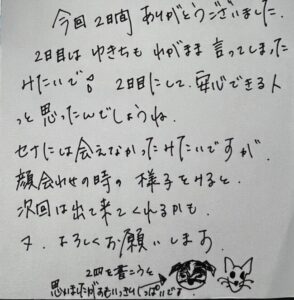 今回2日間ありがとうございました.
2日目はゆきちもわがまま言ってしまった
みたいで💦 2日目にして、安心できる人
っと思ったんでしょうね.
セナには会えなかったみたいですが.
顔合わせの時の様子をみると.
次回は出て来てくれるかも.
又.よろしくお願いします.
2匹を書こうと
思いましたがおもいっきりしっぱいです